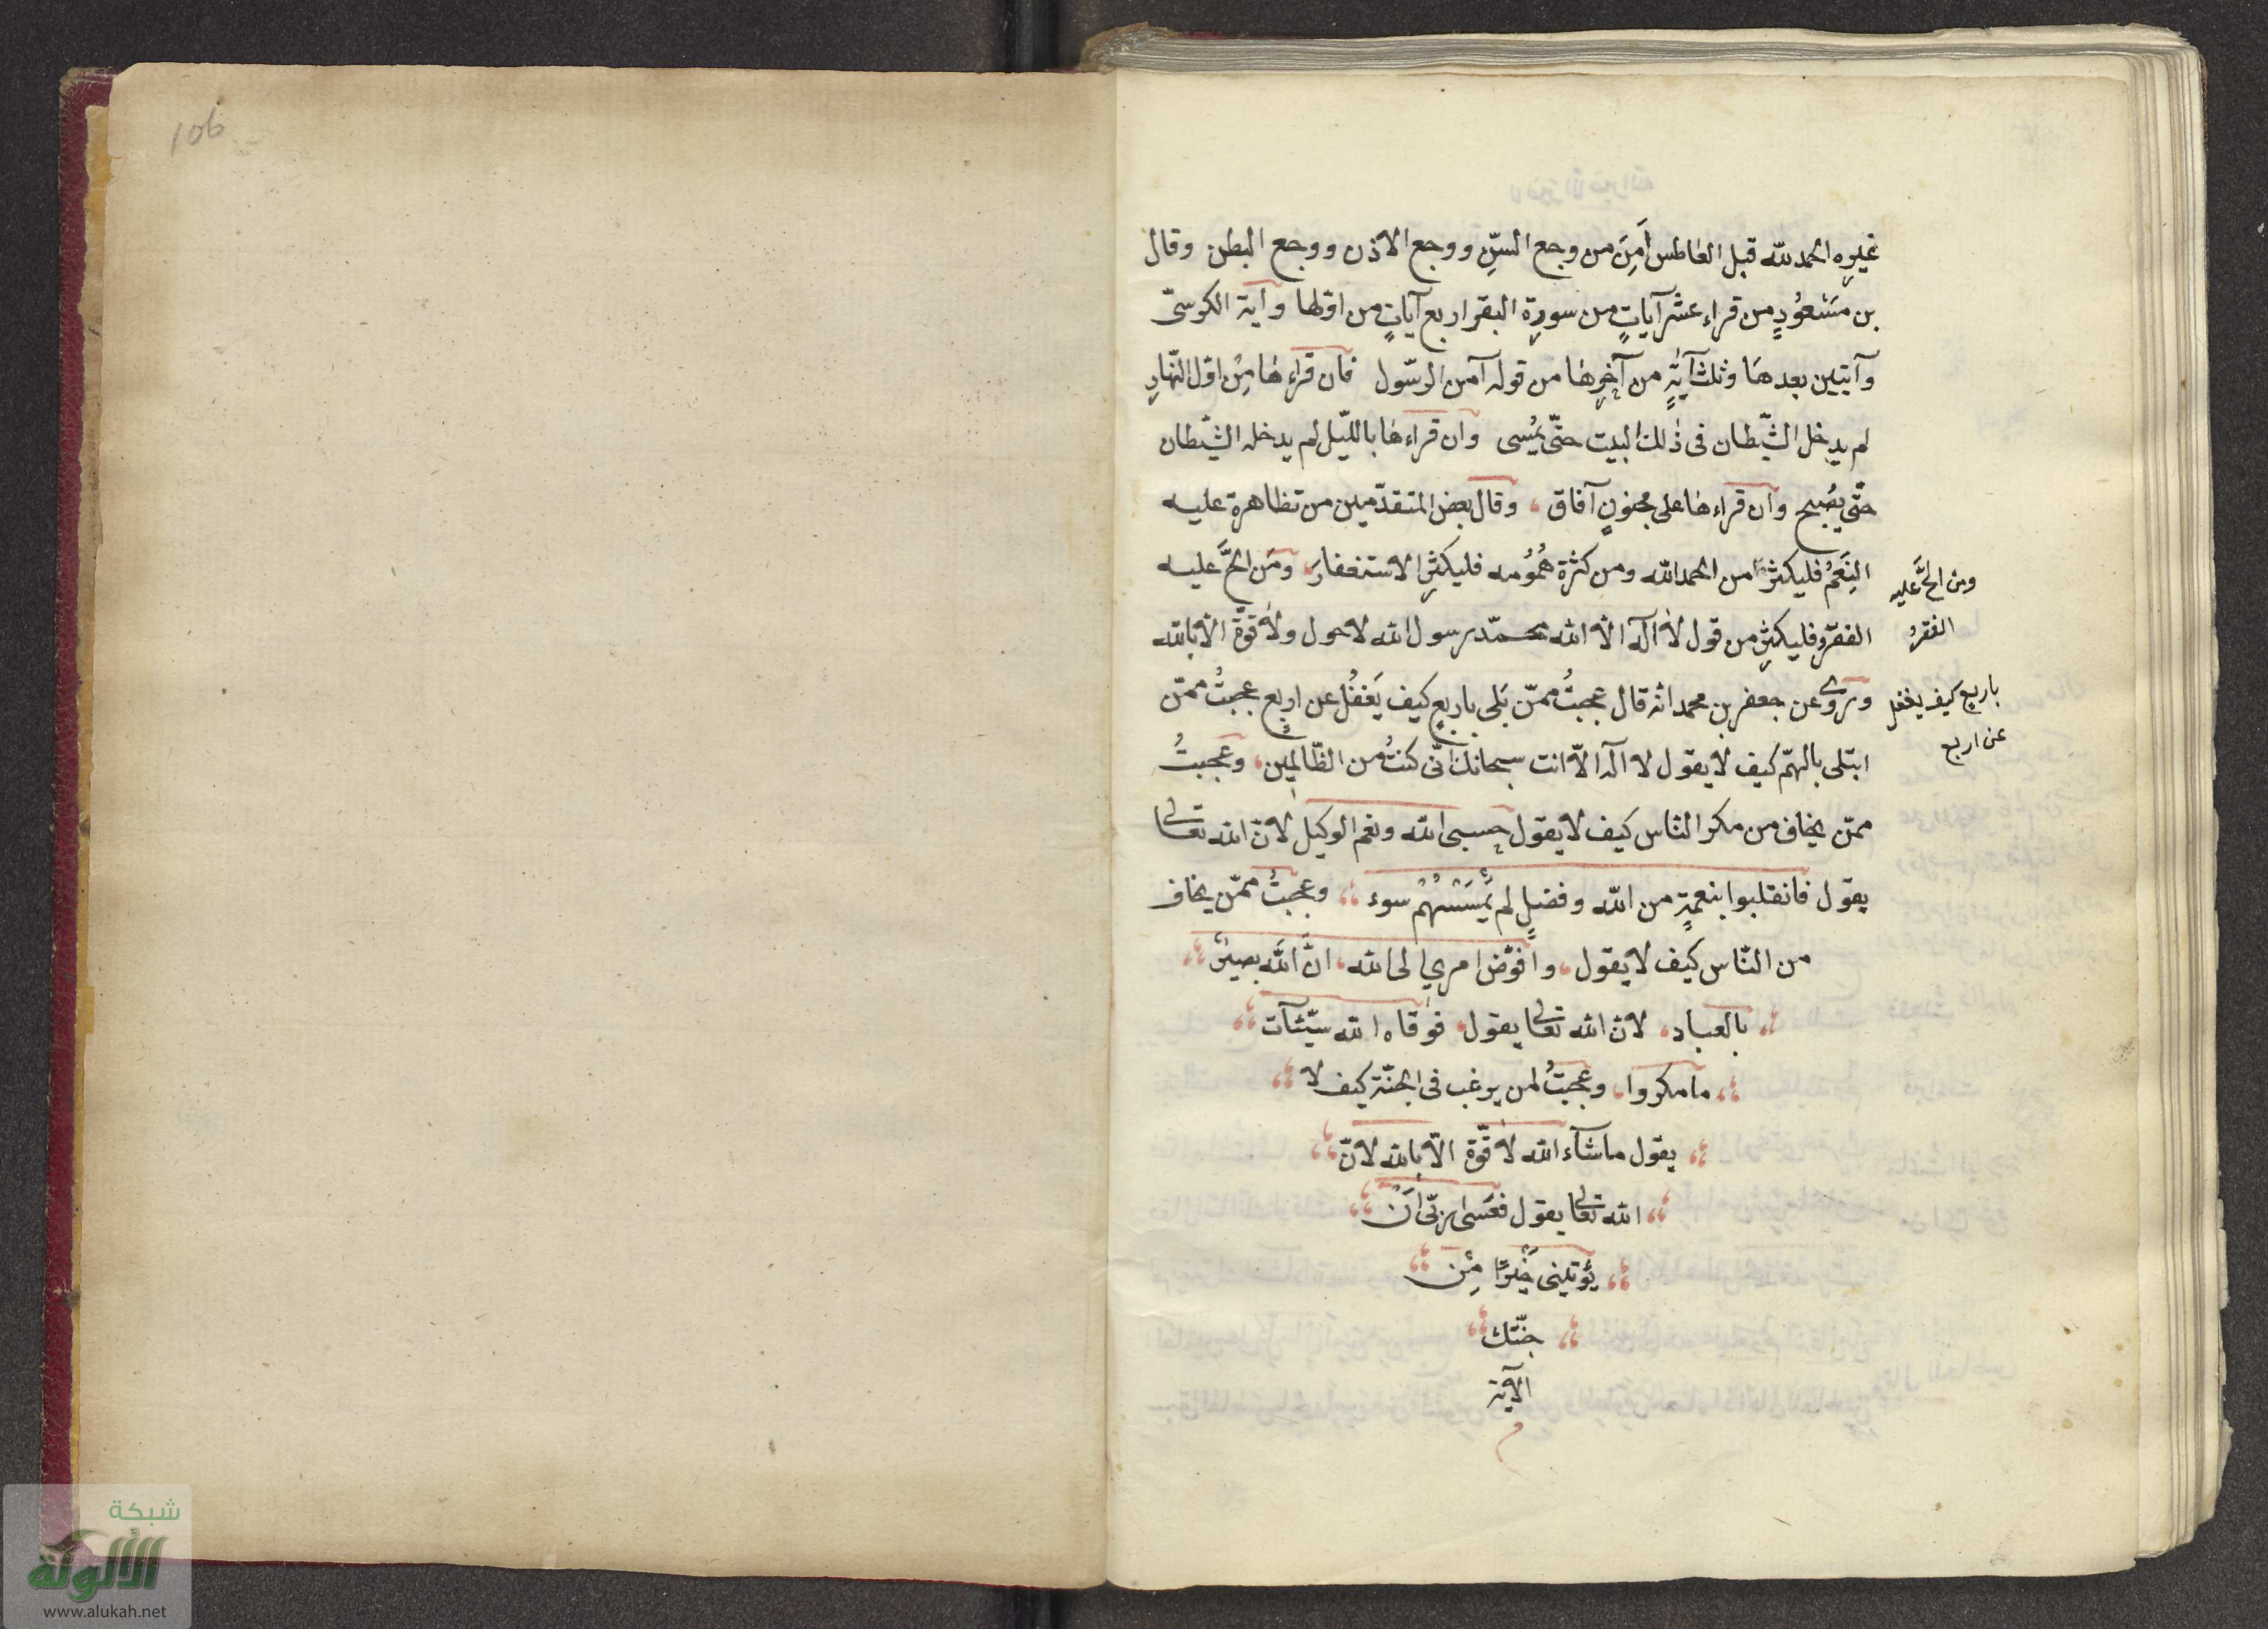 غيره الحمد لله قبل العاطس أَمِنَ من وجع السنّ ووجع الاذن ووجع البطن وقال
بن مَسْعُودٍ من قراء عشر آياتٍ من سورة البقر اربع آياتٍ من اولها وآية الكرسىّ
وآيتين بعدها وثلث آيةٍ من آخرها من قوله آمن الرّسول فان قراءها مِن اوّل النّهارِ
لم يدخل الشّيطان فى ذٰلك البيت حتّى يُمسى وان قراءها بالليّل لم يدخله الشّيطان
حتّى يصُبح وان قراءها على مجنونٍ آفاق ، وقال بعض المتقدّمين من تظاهرة عليه
النِعَمُ فليكثر من الحمد الله ومن كثرة هُمُومه فليكثرِ الاستغفارَ ومَن الحَّ عليه
الفقرُ فليكثرِ من قول لا اله الّا الله محمّد رسول الله لا حول ولا قوّة الّا بالله
وروى عن جعفر بن محمد انه قال عجبتُ ممّن بَلى باربعٍ كيف يَغفُل عن اربع عجبتُ ممّن
ابتلى بالهمّ كيف لا يقول لا اله الّا انت سبحانك انّى كنتُ من الظّالمين ، وعَجبتُ
ممّن يخاف من مكر النّاس كيف لا يقول حسبى الله ونعم الوكيل لانّ الله تعالى
يقول فانقلبوا بنعمةٍ من الله وفضلٍ لم يَمْسَسْهُمْ سوء ،، وعجبتُ ممّن يخاف
من النّاس كيف لا يقول ، وافوّض امري الى الله ، انَّ الله بصيرٌ ،،
،، بالعباد ، لانّ الله تعالى يقول ، فوقاه الله سيّئآت ،،
،، ما مكروا ، وعجبتُ لمن يرغب فى الجنّة كيف لا ،،
،، يقول ماشآء الله لا قوّة الّا بالله لانّ ،،
،، الله تعالى يقول فعَسَى ربّى اَنْ ،،
،، يؤتينى خَيْرًا مِنْ ،،
،، جنّتك ،،
الآية
م
ومن الحَّ عليه
الفقرُ
باربع كيف يغفل
عن اربع
106
شبكة
الألوكة
www.alukah.net